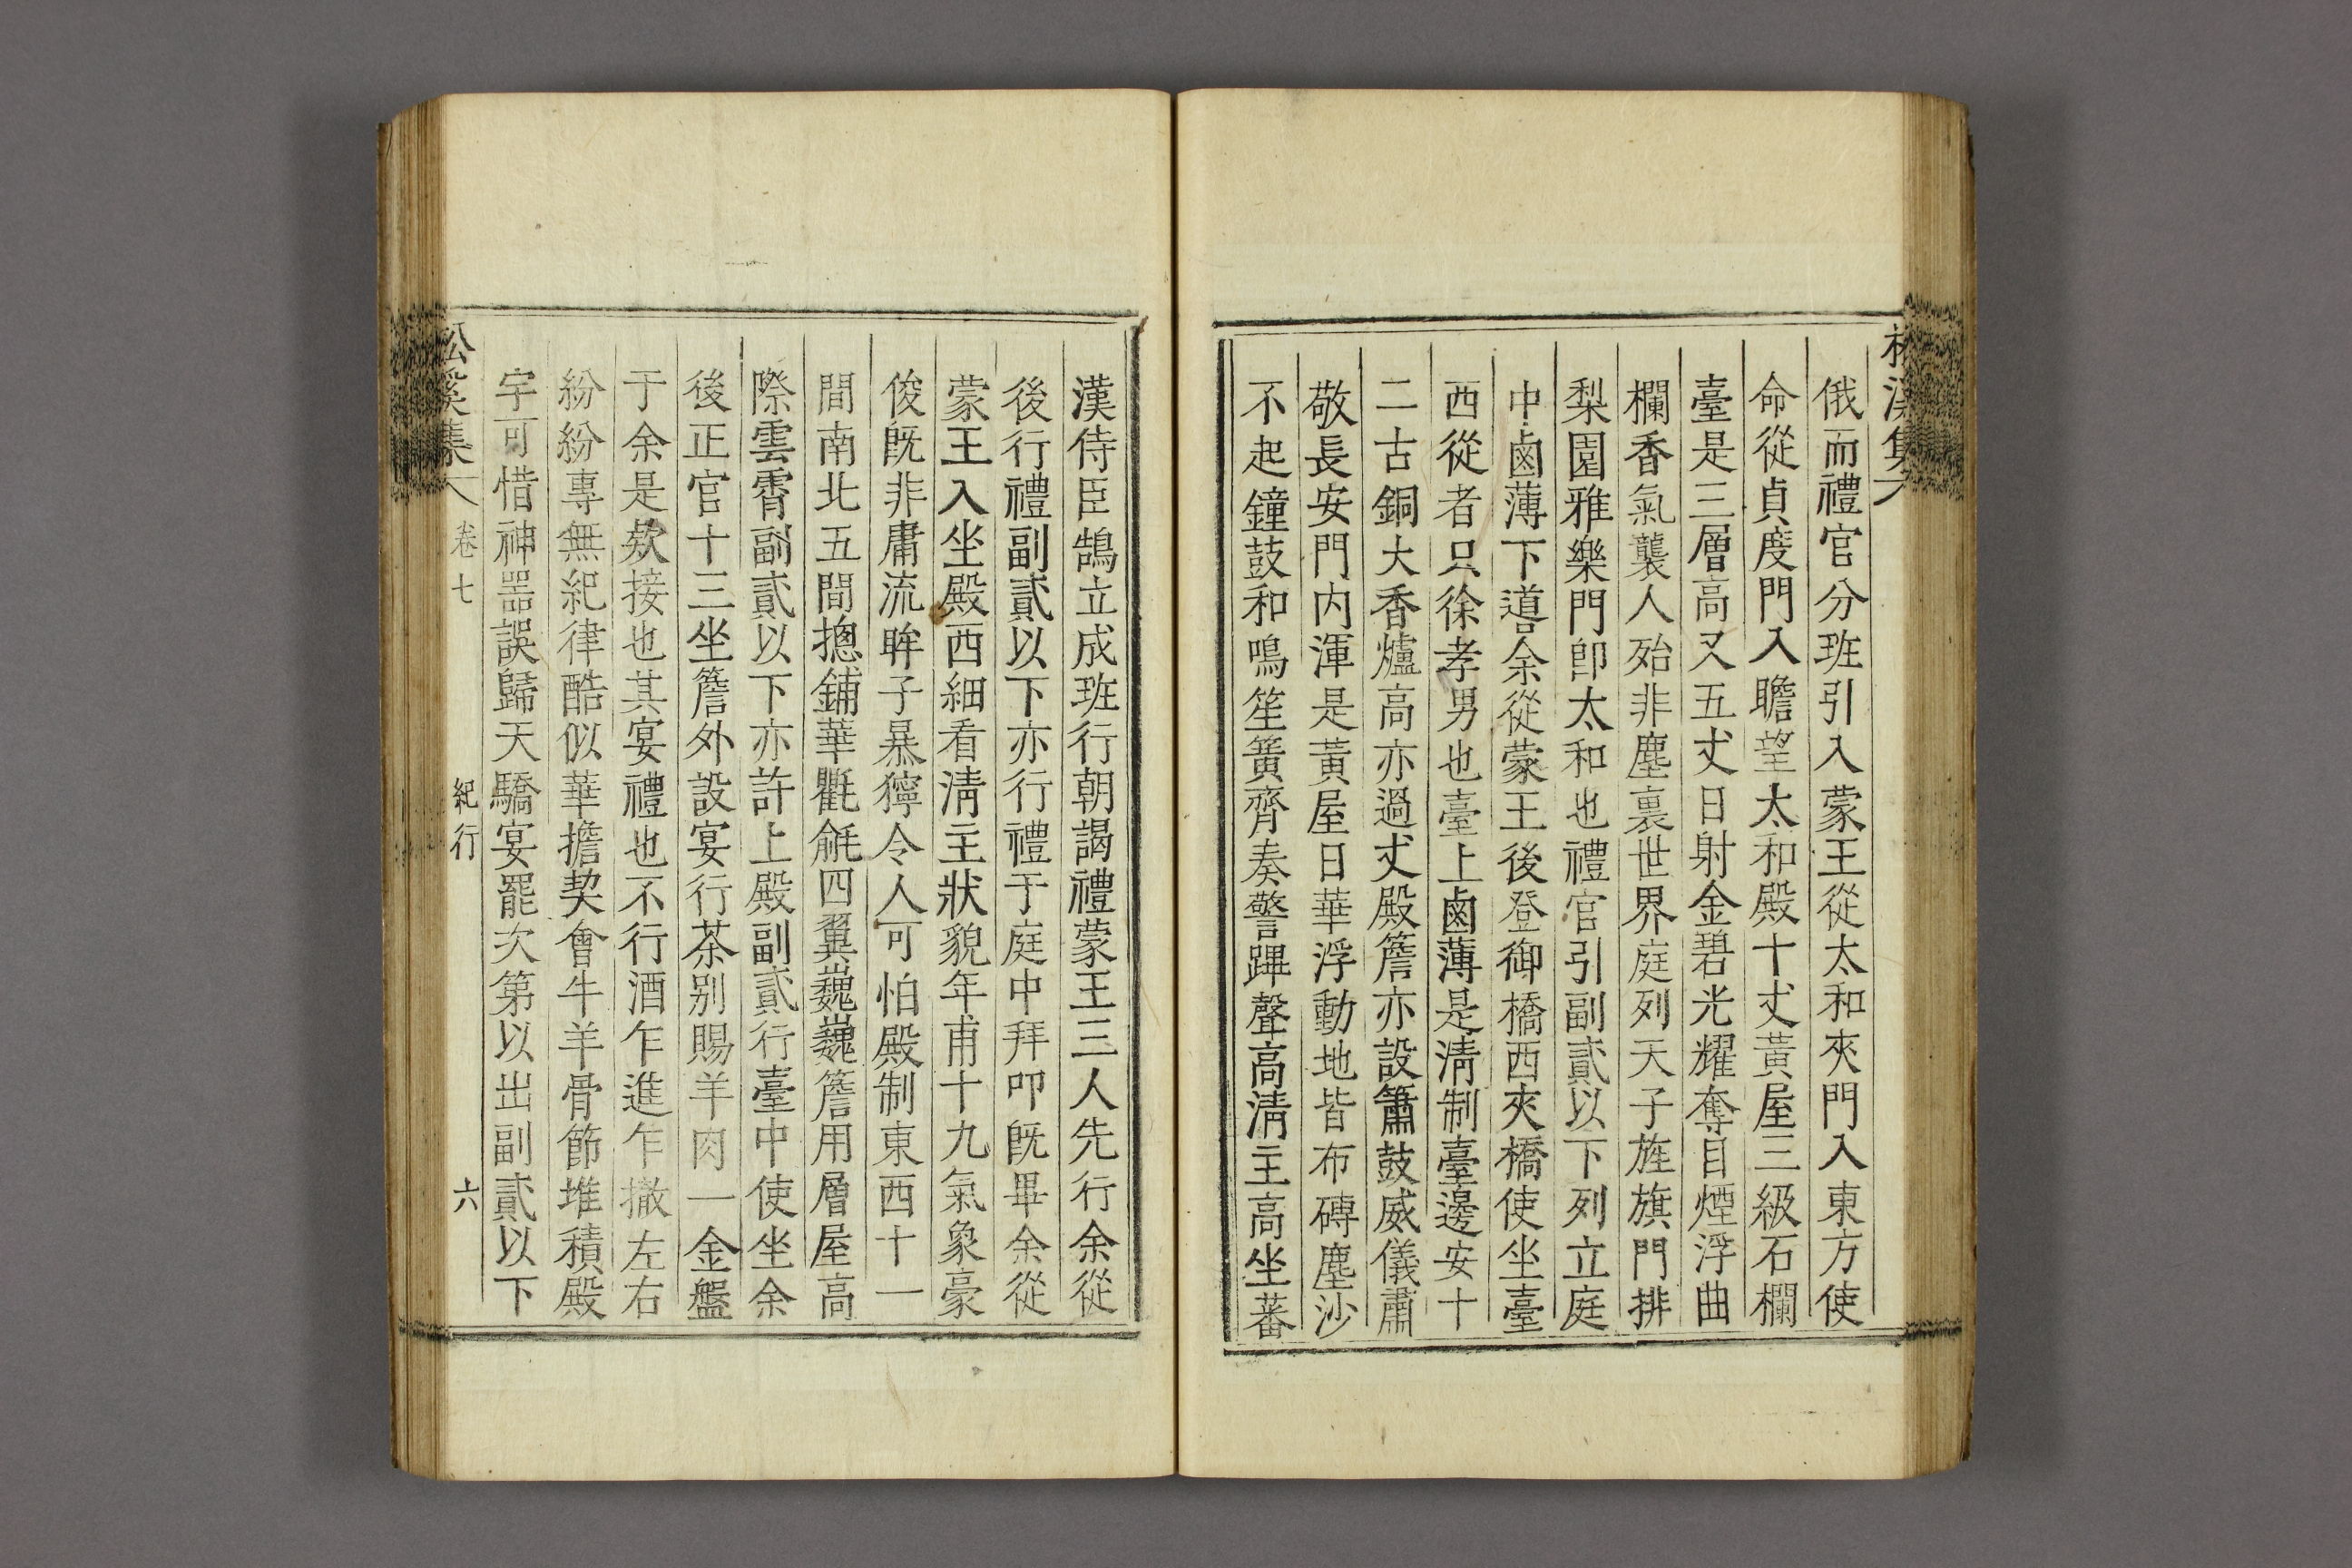 俄而禮官分班引入蒙王從太和夾門入東方使
命從貞度門入瞻望太和殿十丈黃屋三級石欄
臺是三層高又五丈日射金碧光耀奪目煙浮曲
欄香氣襲人殆非塵裏世界庭列天子旌旗門排
梨園雅樂門卽太和也禮官引副貳以下列立庭
中鹵薄下噵余從蒙王後登御橋西夾橋使坐臺
西從者只徐孝男也臺上鹵薄是淸制臺邊安十
二古銅大香爐高亦過丈殿簷亦設簫鼓威儀肅
敬長安門內渾是黃屋日華浮動地皆布磚塵沙
不起鐘鼓和鳴笙簧齊奏警蹕聲高淸主高坐蕃
漢侍臣鵠立成班行朝謁禮蒙王三人先行余從
後行禮副貳以下亦行禮于庭中拜叩旣畢余從
蒙王入坐殿西細看淸主狀貌年甫十九氣象豪
俊旣非庸流眸子暴獰令人可怕殿制東西十一
間南北五間摠鋪華氍毹四翼巍巍簷用層屋高
際雲霄副貳以下亦許上殿副貳行臺中使坐余
後正官十三坐簷外設宴行茶別賜羊肉一金盤
于余是欸接也其宴禮也不行酒乍進乍撤左右
紛紛專無紀律酷似華擔契會牛羊骨節堆積殿
宇可惜神器誤歸天驕宴罷次第以出副貳以下
松溪集 卷七 紀行 六